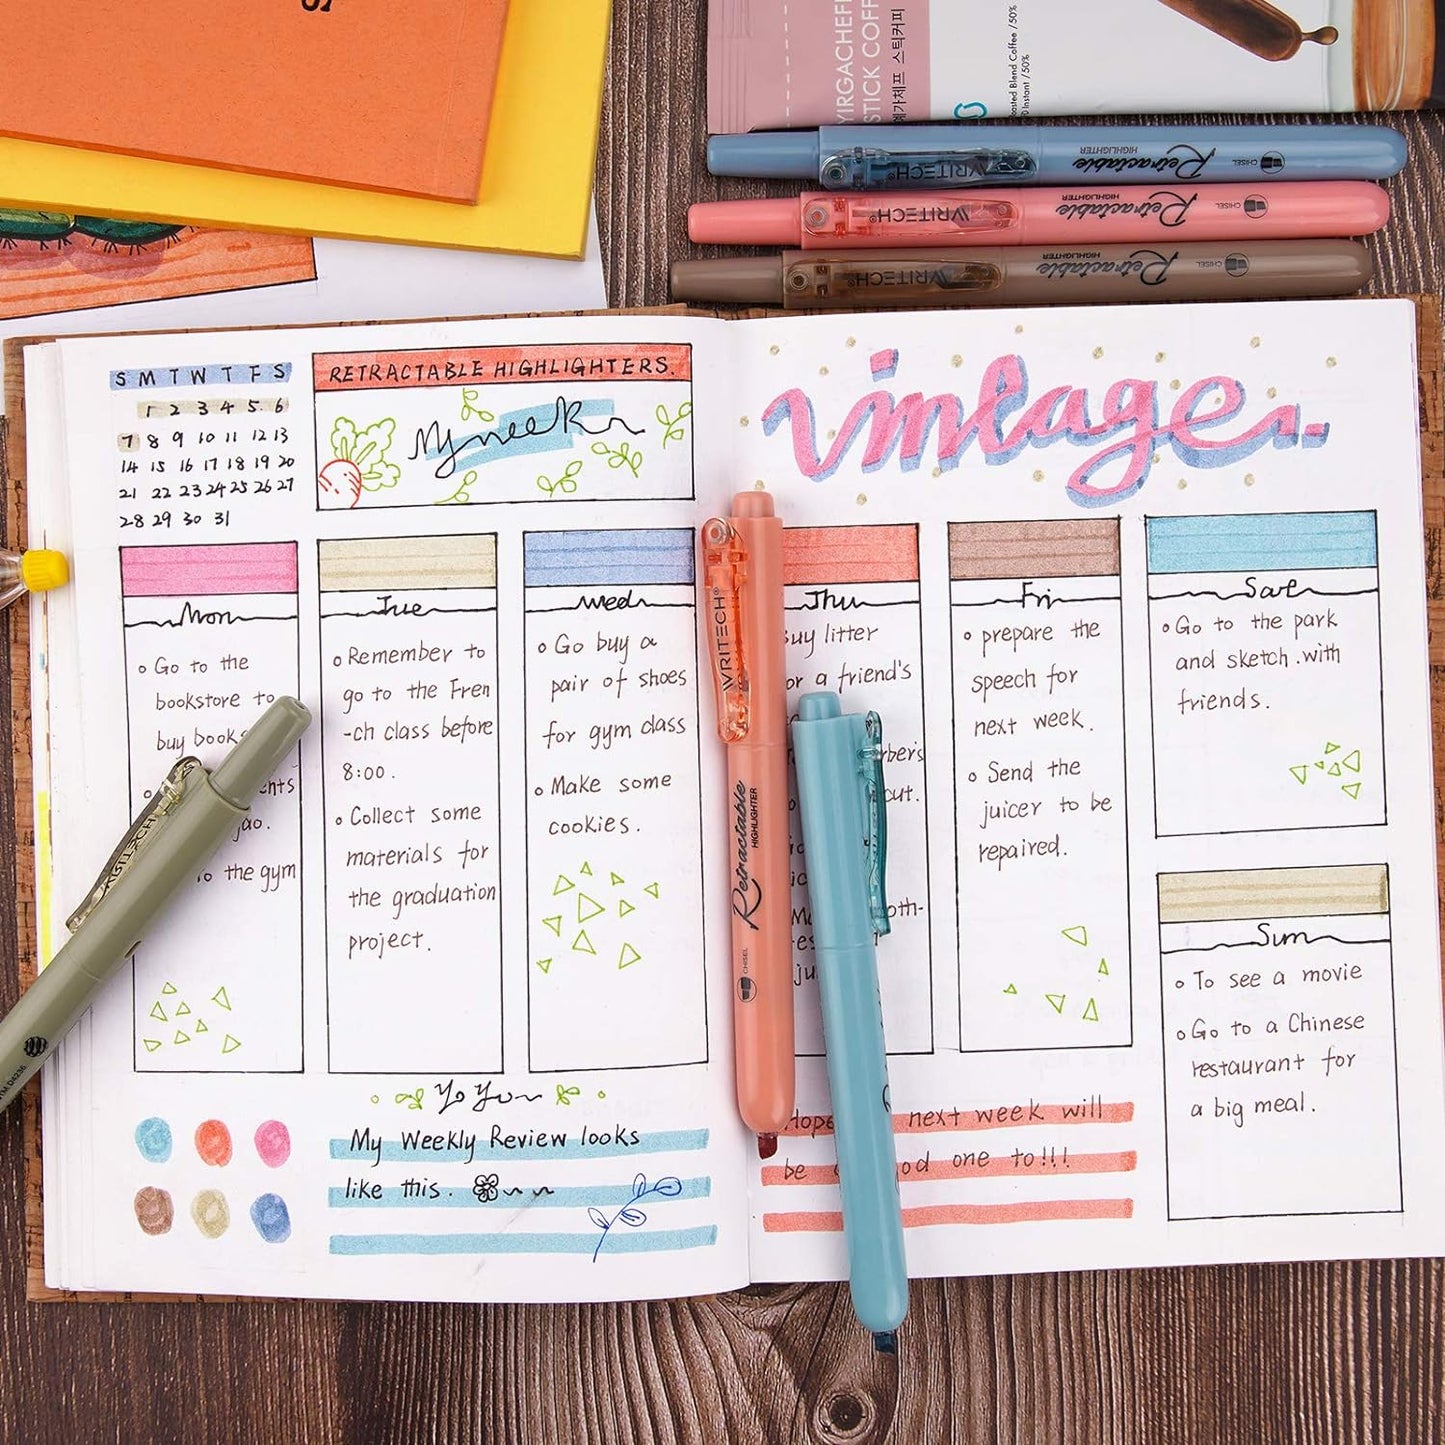 YIRGACHEFFE
STICK COFFEE
예가체프 스틱커피
Roasted Blend Coffee / 50%
Instant / 50%
WRITECH® Retractable HIGHLIGHTER CHISEL
WRITECH® Retractable HIGHLIGHTER CHISEL
WRITECH® Retractable HIGHLIGHTER CHISEL
S M T W T F S
1 2 3 4 5 6
7 8 9 10 11 12 13
14 15 16 17 18 19 20
21 22 23 24 25 26 27
28 29 30 31
RETRACTABLE HIGHLIGHTERS.
My week
Mon
Go to the
bookstore to
buy book
the gym
Tue
Remember to
go to the Fren
-ch class before
8:00.
Collect some
materials for
the graduation
project.
Wed
Go buy a
pair of shoes
for gym class
Make some
cookies.
My Weekly Review looks
like this.
WRITECH®
WRITECH®
Retractable
HIGHLIGHTER
CHISEL
vintage
Thu
buy litter
for a friend's
Fri
prepare the
speech for
next week.
Send the
juicer to be
repaired.
Sat
Go to the park
and sketch.with
friends.
Sun
To see a movie
Go to a Chinese
restaurant for
a big meal.
Hope next week will
be good one to!!!